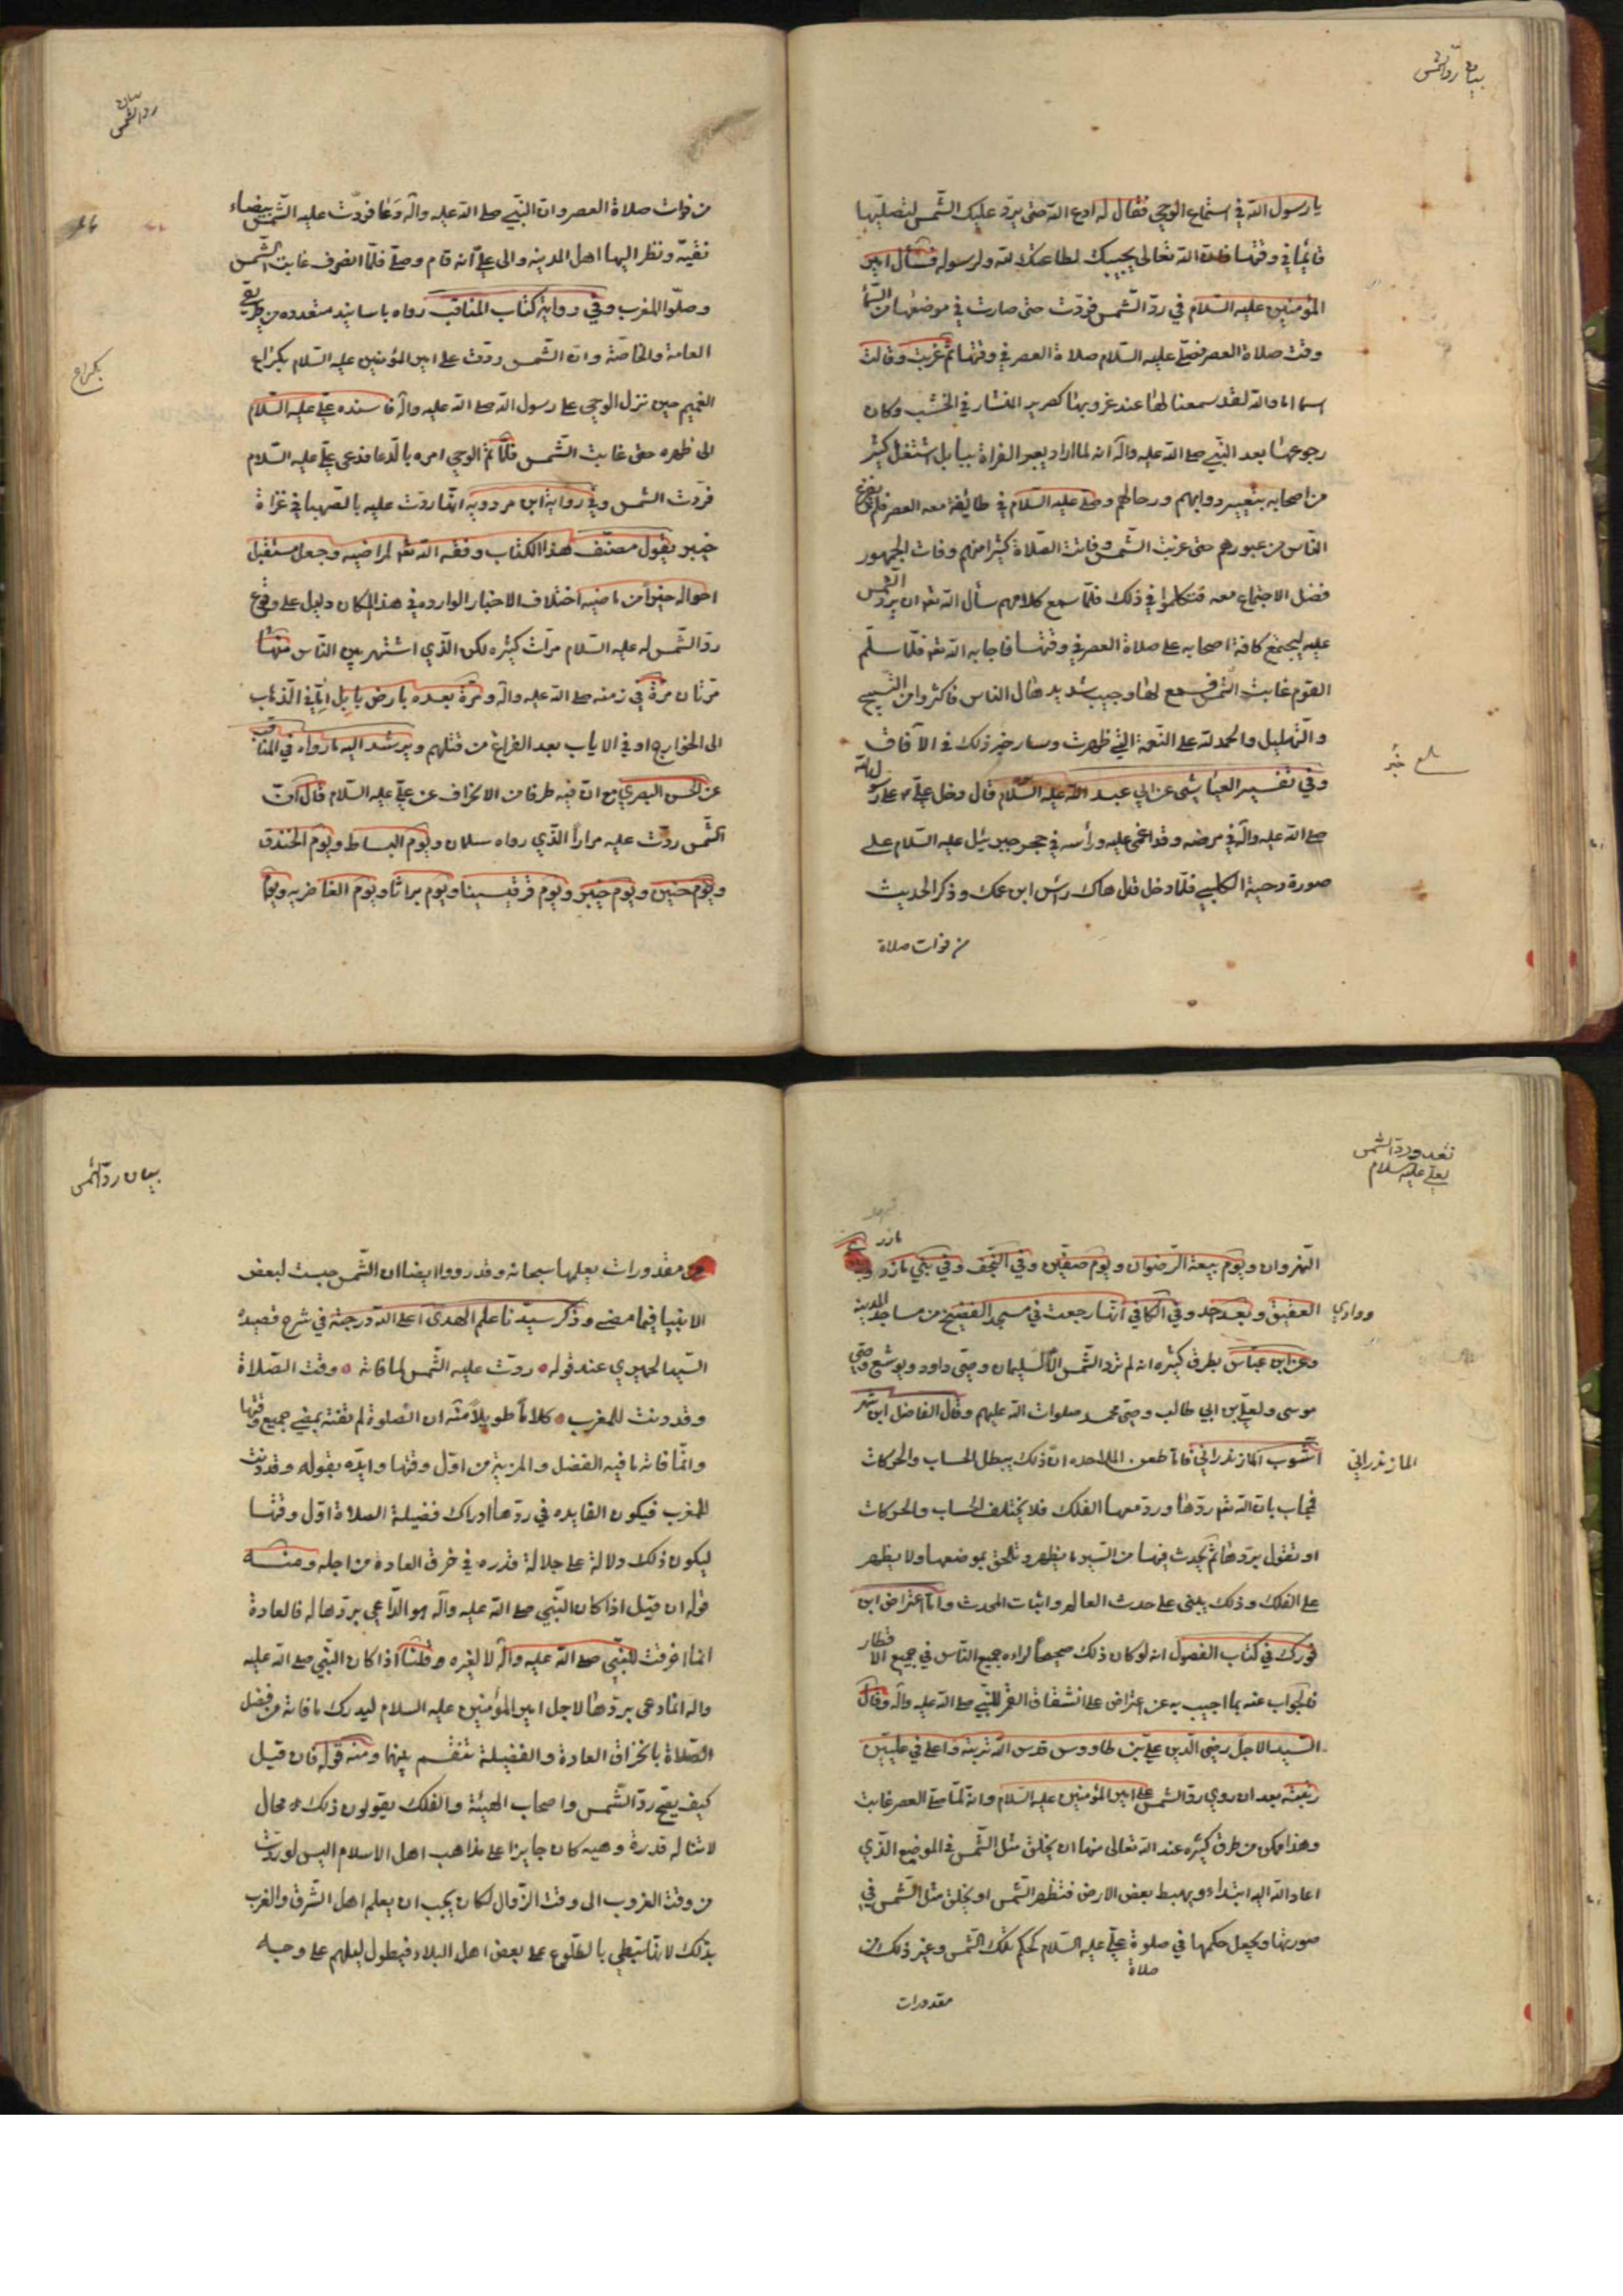 بيان ردّ الشمس
يا رسول الله في استماع الوحي فقال له ادع الله حتى يردّ عليك الشّمس لتصلّيها
قائما في وقتها فان الله تعالى يجيبك لطاعتك لله ولرسوله فسأل امير
المؤمنين عليه السّلام في ردّ الشّمس فردّت حتى صارت في موضعها من السّماء
وقت صلاة العصر فصلّى عليه السّلام صلاة العصر في وقتها ثمّ غربت وقالت
اسما اما والله لقد سمعنا لها عند غروبها كصرير المنشار في الخشب وكان
رجوعها بعد النبّي صلى الله عليه وآله انه لما اراد يعبر الفراة ببابل اشتغل كثير
من اصحابه بتعبير دوابهم ورحالهم وصلى عليه السّلام في طائفة معه العصر فلم يفرغ
النّاس من عبورهم حتى غربت الشّمس وفاتت الصّلاة كثيرا منهم وفات الجمهور
فضل الاجتماع معه فتكلموا في ذلك فلمّا سمع كلامهم سأل الله تعه ان يردّ الشمس
عليه ليجتمع كافة اصحابه على صلاة العصر في وقتها فاجابه الله تعه فلمّا سلّم
القوم غابت الشّمس فسمع لها وجيب شديد هال الناس فاكثروا من التّسبيح
والتّهليل والحمد لله على النّعمة الّتي ظهرت وسار خبر ذلك في الآفاق
وفي تفسير العيّاشي عن ابي عبد الله عليه السّلام قال دخل عليّ ع على رسول الله
صلى الله عليه وآله في مرضه وقد اغمي عليه ورأسه في حجر جبرئيل عليه السّلام على
صورة دحية الكلبي فلمّا دخل قال هاك رأس ابن عمك وذكر الحديث
من فوات صلاة
بيان
رد الشمس
من فوات صلاة العصر وان النبّي صلى الله عليه وآله دعا فردّت عليه الشّمس بيضاء
نقيّة ونظر اليها اهل المدينه والى عليّ انه قام وصلّى فلمّا انصرف غابت الشّمس
وصلّوا المغرب وفي رواية كتاب المناقب رواه باسانيد متعدده من طريقي
العامة والخاصّة وان الشّمس ردّت على امير المؤمنين عليه السّلام بكراع
بكراع
الغميم حين نزل الوحي على رسول الله صلى الله عليه وآله فاسنده عليّ عليه السّلام
الى ظهره حتى غابت الشّمس فلمّا تمّ الوحي امره بالدّعا فدعى عليّ عليه السّلام
فردّت الشمس وفي رواية ابن مردويه انّها ردّت عليه بالصّهبا في غزاة
خيبر يقول مصنّف هذا الكتاب وفقه الله تعه لمراضيه وجعل مستقبل
احواله خيراً من ماضيه اختلاف الاخبار الوارده في هذا المكان دليل على وقوع
ردّ الشّمس له عليه السّلام مرّات كثيره لكن الّذي اشتهر بين النّاس منها
مرّتان مرّة في زمنه صلى الله عليه وآله ومرّة بعده بارض بابل امّا في الذّهاب
الى الخوارج او في الاياب بعد الفراغ من قتلهم ويرشد اليه ما رواه في المناقب
عن الحسن البصري مع ان فيه طرفا من الانحراف عن عليّ عليه السّلام قال انّ
الشّمس ردّت عليه مراراً الّذي رواه سلمان ويوم البساط ويوم الخندق
ويوم حنين ويوم خيبر ويوم قرقيسيا ويوم براثا ويوم الغاضريه ويوم
تعدد ردّ الشمس
لعليّ عليه السلام
النّهروان ويوم بيعة الرّضوان ويوم صفّين وفي النّجف وفي بني مازر
العقيق وبعد احد وفي الكافي انّها رجعت في مسجد الفضيخ من مساجد المدينة
ووادي
وعن ابن عبّاس بطرق كثيره انه لم تردّ الشّمس الاّ لسليمان وصيّ داود ويوشع وصيّ
موسى ولعليّ بن ابي طالب وصيّ محمد صلوات الله عليهم وقال الفاضل ابن شهر
اشوب المازندراني فاما طعن الملاحده انّ ذلك يبطل الحساب والحركات
المازندراني
فيجاب بان الله تعه ردّها وردّ معها الفلك فلا يختلف الحساب والحركات
او نقول يردّها ثمّ يحدث فيها من السّير ما يظهر وتلحق بموضعها ولا يظهر
على الفلك وذلك يبنى على حدث العالم واثبات المحدث واما اعتراض ابن
فورك في كتاب الفصول انه لو كان ذلك صحيحاً لراه جميع النّاس في جميع الاقطار
فالجواب عنه بما اجيب به عن اعتراض على انشقاق القمر للنبّي صلى الله عليه وآله وقال
السّيد الاجل رضي الدّين عليّ بن طاووس قدس الله تربته واعلى في علّيين
رتبته بعد ان روي ردّ الشّمس على امير المؤمنين عليه السّلام وانه لمّا صلى العصر غابت
وهذا ممكن من طرق كثيره عند الله تعالى منها ان يخلق مثل الشّمس في الموضع الّذي
اعاد الله اليه ابتداء ويهبط بعض الارض فتظهر الشّمس او يخلق مثل الشّمس في
صورتها ويجعل حكمها في صلوة عليّ عليه السّلام كحكم تلك الشّمس وغير ذلك من
صلاة
مقدورات
بيان ردّ الشمس
من مقدورات يعلمها سبحانه وقد رووا ايضا ان الشّمس حبست لبعض
الانبيا فيما مضى وذكر سيّدنا علم الهدى اعلى الله درجته في شرح قصيدة
السّيد الحميري عند قوله ردّت عليه الشّمس لما فاته وقت الصّلاة
وقد دنت للمغرب كلاماً طويلاً منه ان الصّلوة لم تفته بمضي جميع وقتها
وانّما فاته ما فيه الفضل والمزية من اوّل وقتها وايّده بقوله وقد دنت
للمغرب فيكون الفايده في ردّها ادراك فضيلة الصلاة اوّل وقتها
ليكون ذلك دلالة على جلالة قدره في خرق العادة من اجله ومنه
قوله ان قيل اذا كان النبّي صلى الله عليه وآله هو الدّاعي بردّها له فالعادة
انما اخرقت للنبّي صلى الله عليه وآله لا لغيره قلنا اذا كان النبّي صلى الله عليه
وآله انما دعى بردّها لاجل امير المؤمنين عليه السلام ليدرك ما فاته من فضل
الصّلاة بانخراق العادة والفضيلة تنقسم بينهما ومنه قوله فان قيل
كيف يصح ردّ الشّمس واصحاب الهيئة والفلك يقولون ذلك محال
لا تناله قدرة وهبه كان جايزا على مذاهب اهل الاسلام اليس لو ردّت
من وقت الغروب الى وقت الزّوال لكان يجب ان يعلم اهل الشّرق والغرب
بذلك لانّها تبطي بالطّلوع على بعض اهل البلاد فيطول ليلهم على وجه